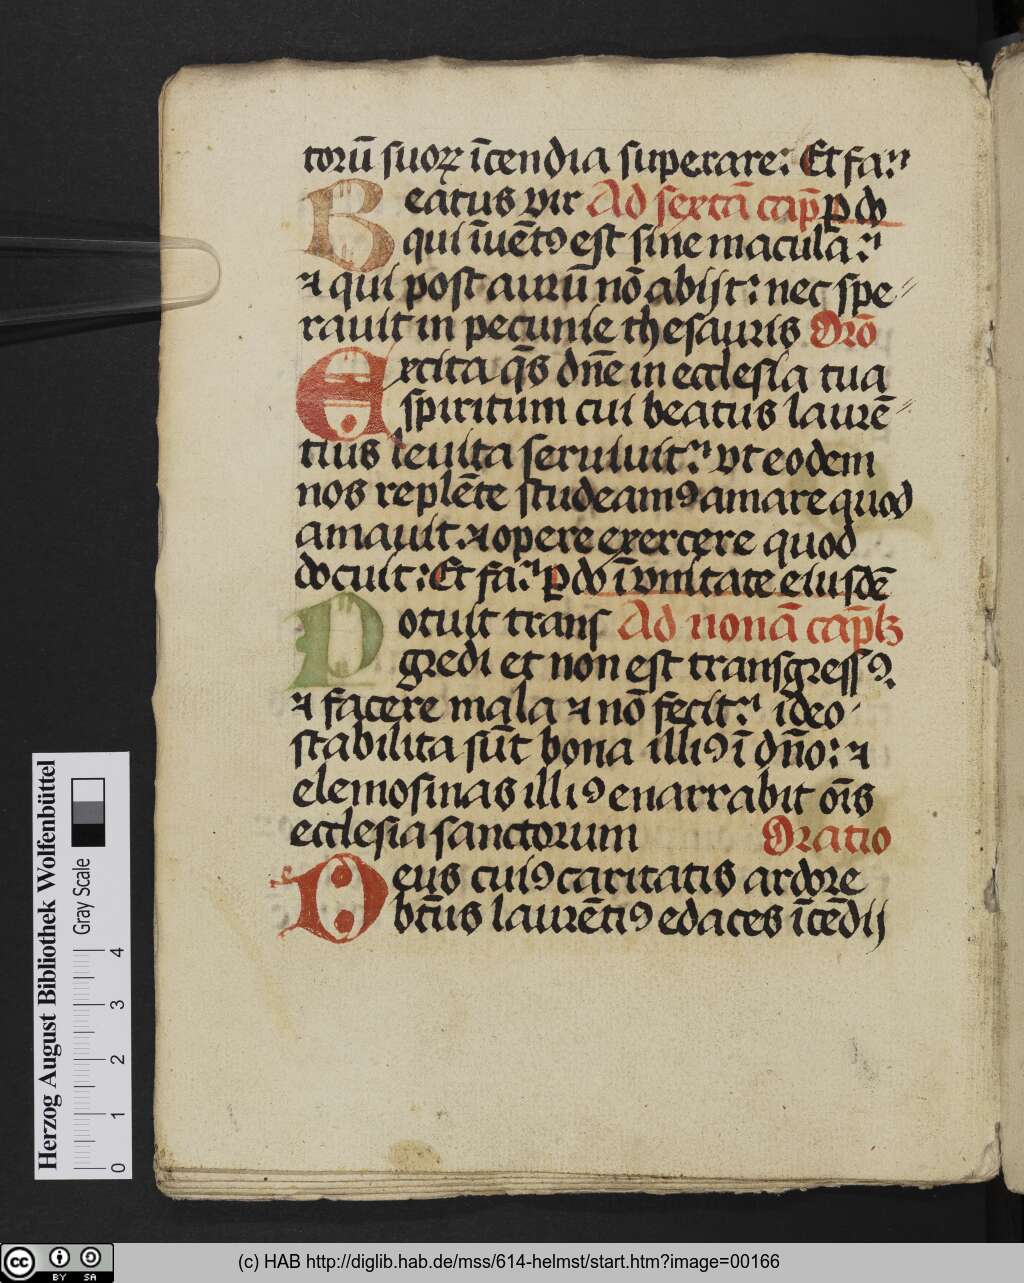 torū suoꝝ īcendia superare: Et fa:
Beatus vir Ad sextā cap̄ ꝑ do
qui īuētꝰ est sine macula:
⁊ qui post aurū nō abijt: nec spe
rauit in pecunie thesauris Orō
Excita q̄s dn̄e in ecclesia tua
spiritum cui beatus laurē
tius leuita seruiuit: vt eodem
nos replēte studeamꝰ amare quod
amauit ⁊ opere exercere quod
docuit: Et fa: ꝑ do ī vnitate eiusdē
Potuit trans Ad nonā cap̄lꝫ
gredi et non est transgressꝰ
⁊ facere mala ⁊ nō fecit: ideo
stabilita sūt bona illiꝰ ī dn̄o: ⁊
elemosinas illiꝰ enarrabit oīs
ecclesia sanctorum Oratio
Deus cuiꝰ caritatis ardore
bt̄us laurētiꝰ edaces īcēdij
Herzog August Bibliothek Wolfenbüttel
Gray Scale
0 1 2 3 4
cc BY SA
(c) HAB http://diglib.hab.de/mss/614-helmst/start.htm?image=00166